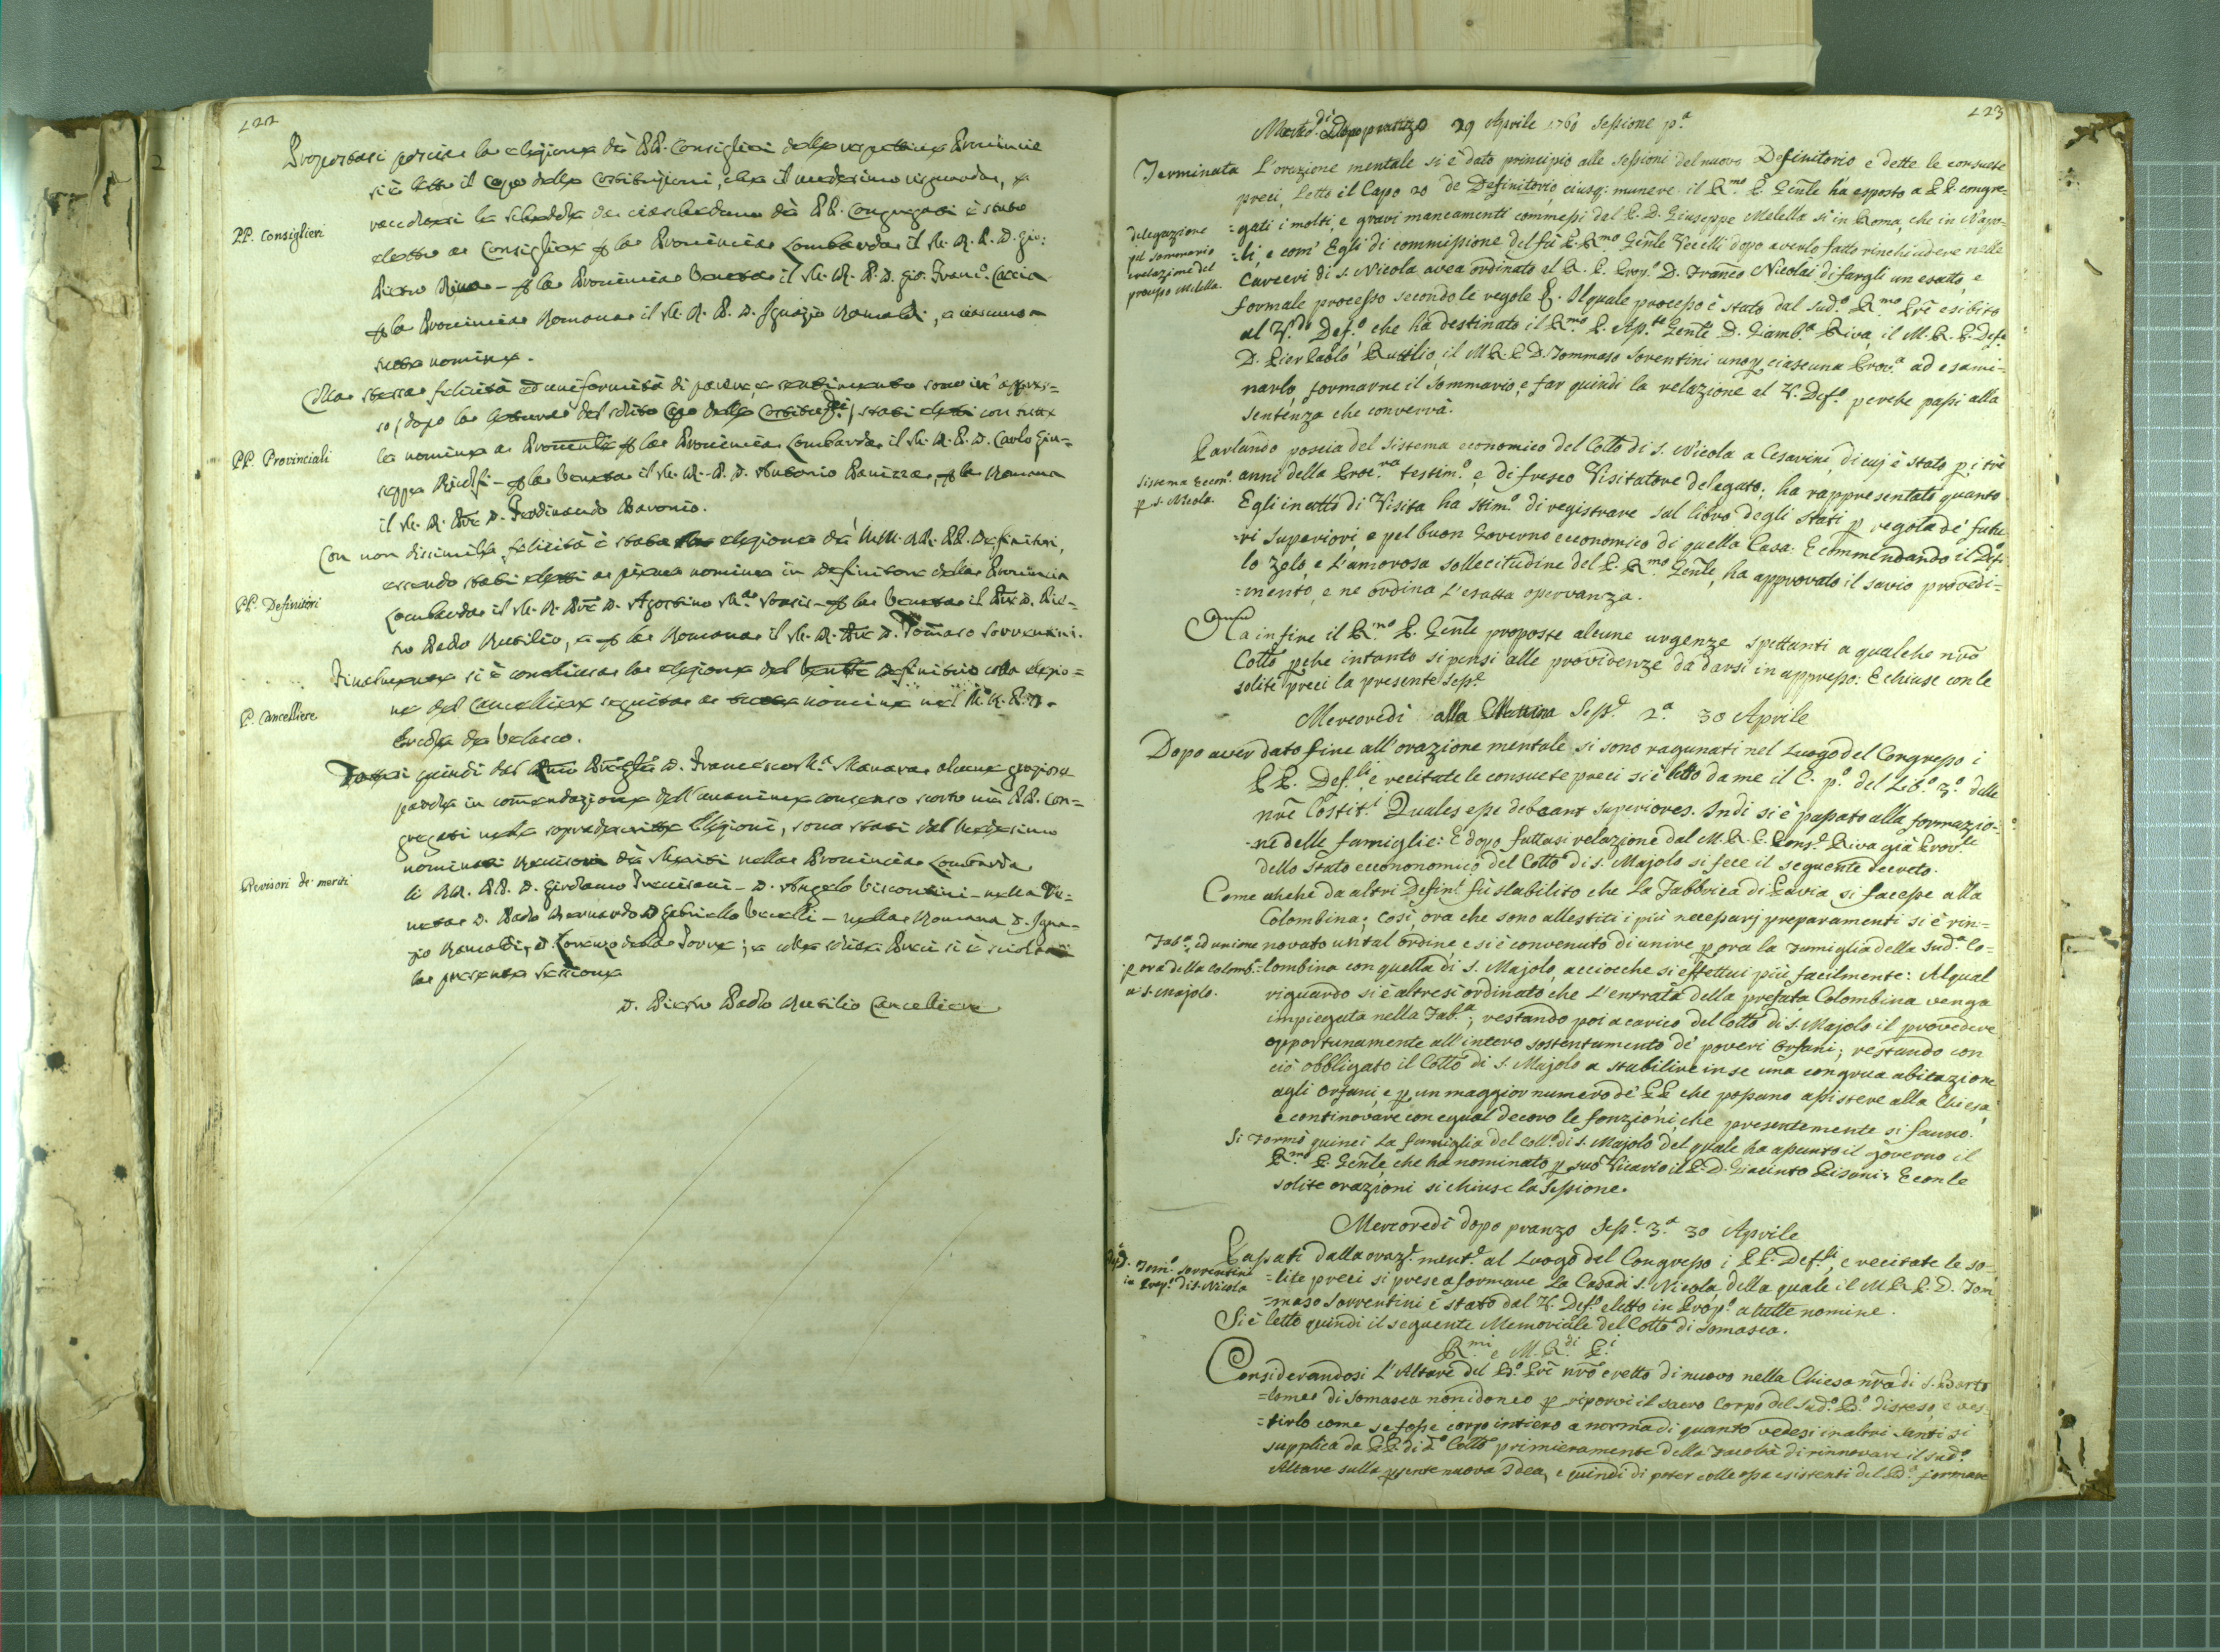 122
Propostasi poscia la elezione dà PP. Consiglieri delle rispettive Provincie
si è letto il Capo delle Costituzioni, che il medesimo riguarda, e
raccoltesi le schedole da ciascheduno dà PP. Congregati è stato
PP. Consiglieri
eletto a Consigliere per la Provincia Lombarda il M. R. P. D. Gio:
Pietro Riva – per la Provincia Veneta il M. R. P. D. Gio. Franco. Caccia
per la Provincia Romana il M. R. P. D. Ignazio Romaldi, a ciascuno a
tutta nomine.
Colla stessa felicità ed uniformità di parere, e sentimento sono in appres=
so (dopo la lettura del solito Capo delle Costituzni) stati eletti con tutte
PP. Provinciali
le nomine a Provinciali per la Provincia Lombarda il M. R. P. D. Carlo Giu=
seppe Ridolfi – per la Veneta il M. R. P. D. Antonio Panizza, per la Romana
il M. R. Pre D. Ferdinando Bavonio.
Con non dissimile felicità è stata elezione dà MM. RR. PP. Definitori,
essendo stati eletti a piena nomina in Definitore della Provincia
PP. Definitori
Lombarda il M. R. Pre D. Agostino Ma. – per la Veneta il Pre D. Pie=
tro Paolo Rutilio, e per la Romana il M. R. Pre D. Tomaso Sorrentini.
Finalmente si è conchiusa la elezione del Definitorio colla elezio=
P. Cancelliere
ne del Cancelliere seguita a tutte nomine nel M. R. P. D.
Ercole de Velasco.
quindi dal Rmo D. Francesco Ma. Manara alcune graziose
parole in comendazione dell'unanime consenso scorto nà PP. Con=
gregati nelle sopradescritte Elezioni, sono stati dal Medesimo
nominati Revisori dà Meriti nella Provincia Lombarda
Revisori de' meriti
li RR. PP. D. Girolamo Trevisani – D. Angelo Viscontini – nella Ve=
neta D. Paolo Bernardo D. Gabriello Vecelli – nella Romana D. Igna=
zio Romaldi, D. Lorenzo dalla Torre; e colle solite Preci si è sciolta
la presente Sessione
D. Pietro Paolo Rutilio Cancelliere
123
Marte.di Dopo pranzo 29 Aprile 1760 Sessione p.a
Terminata L'orazione mentale si è dato principio alle sessioni del nuovo Definitorio e dette le consuete
preci, Letto il Capo 20 de Definitorio, eiusq: munere il R.mo P. Genle ha esposto a PP. congre=
delegazione
pel sommario
e relazione del
processo Melella.
=gati i molti, e gravi mancamenti commessi dal P. D. Giuseppe Melella sì in Roma, che in Napo=
=li, e com' Egli di commissione del fù P. R.mo Genle Vecelli dopo averlo fatto rinchiudere nelle
Carceri di s. Nicola avea ordinato al R. P. Prov.o D. Franco Nicolai di fargli un esatto, e
formale processo secondo le regole &. Il quale processo è stato dal sud.o R.mo Pre esibito
al V. Def.o che ha destinato il R.mo P. Ap.te Genle D. Giamb.a Riva, il M. R. P. Def.e
D. Pier Paolo Rutilio, il M. R. P. D. Tommaso Sorrentini uno p ciascuna Prov.a ad esami=
narlo, formarne il Sommario, e far quindi la relazione al V. Def.o perche passi alla
sentenza che converrà.
Parlando poscia del sistema economico del Collo di S. Nicola a Cesarini, di cuj è stato p i trè
sistema Econ.o
p s. Nicola.
anni della testim.o e di fresco Visitatore delegato; ha rappresentato quanto
Egli in atto di Visita ha stim.o di registrare sul libro degli stati p regola de' futu
-ri Superiori, e pel buon Governo economico di quella Casa: E commendando il Def.o
lo zelo, e l'amorosa sollecitudine del P. R.mo Genle, ha approvato il savio provedi=
=mento, e ne ordina l'esatta osservanza.
Ha in fine il R.mo P. Genle proposte alcune urgenze spettanti a qualche nro
Collo pche intanto si pensi alle providenze da darsi in appresso: E chiuse con le
solite preci la presente Sess.e
Mercoredi alla Mattina Sess.e 2.a 30 Aprile
Dopo aver dato fine all'orazione mentale si sono ragunati nel Luogo del Congresso i
PP. Def.ti, e recitate le consuete preci si è letto da me il C. p.o del Lib.o 3.o delle
nre Costit.i Quales esse debeant superiores. Indi si è passato alla formazio-
-ne delle famiglie: E dopo fattasi relazione dal M. R. P. Cons.e Riva già Prov.le
dello stato economico del Collo di s. Majolo si fece il seguente decreto.
Come anche da altri Defini fù stabilito che la Fabbrica di Pavia si facesse alla
Colombina; Così ora che sono allestiti i più necessarj preparamenti si è rin=
Fab.a, ed unione
p ora della Colomb.a
a s. Majolo.
novato un tal ordine, e si è convenuto di unire p ora la Famiglia della Sud.a Co=
=lombina con quella di s. Majolo, acciocche si effettui più facilmente: Al qual
riguardo si è altresì ordinato che L'entrata della prefata Colombina venga
impiegata nella Fab.a; restando poi a carico del Collo di s. Majolo il provedere
opportunamente all'intero sostentamento de' poveri Orfani; restando con
ciò obbligato il Collo di s. Majolo a stabilire in se una congrua abitazione
agli Orfani, e p un maggior numero de' PP che possano assistere alla Chiesa
e continovare con egual decoro le fonzioni, che presentemente si fanno.
Si Formò quinci La famiglia del Coll.o di s. Majolo del quale ha assunto il governo il
R.mo P. Genle, che ha nominato p suo Vicario il P. D. Giacinto Pisani; E con le
solite orazioni si chiuse la Sessione.
Mercoredi dopo pranzo Sess.e 3.a 30 Aprile
Passati dalla oraz.e ment.e al Luogo del Congresso i PP. Def.ti, e recitate le so-
D. Tom.o Sorrentini
in Prep.o di s. Nicola
=lite preci si prese a formare La Casa di s. Nicola, della quale il M. R. P. D. Tom
=maso Sorrentini è stato dal V. Def.o eletto in Prop.o a tutte nomine.
Si è letto quindi il seguente Memoriale del Collo di Somasca.
R.mi e M. R.di P.i
Considerandosi L'Altare del B.o Pre nro eretto di nuovo nella Chiesa nra di s. Barto
=lomeo di Somasca non idoneo p riporvi il sacro Corpo del Sud.o B.o disteso, e ves=
=tirlo come se fosse corpo intiero a norma di quanto vedesi in altri Santi si
supplica da PP. di d.o Collo primieramente della Facoltà di rinnovare il sud.o
Altare sulla psente nuova Idea, e quindi di poter colle ossa esistenti del B.o formare